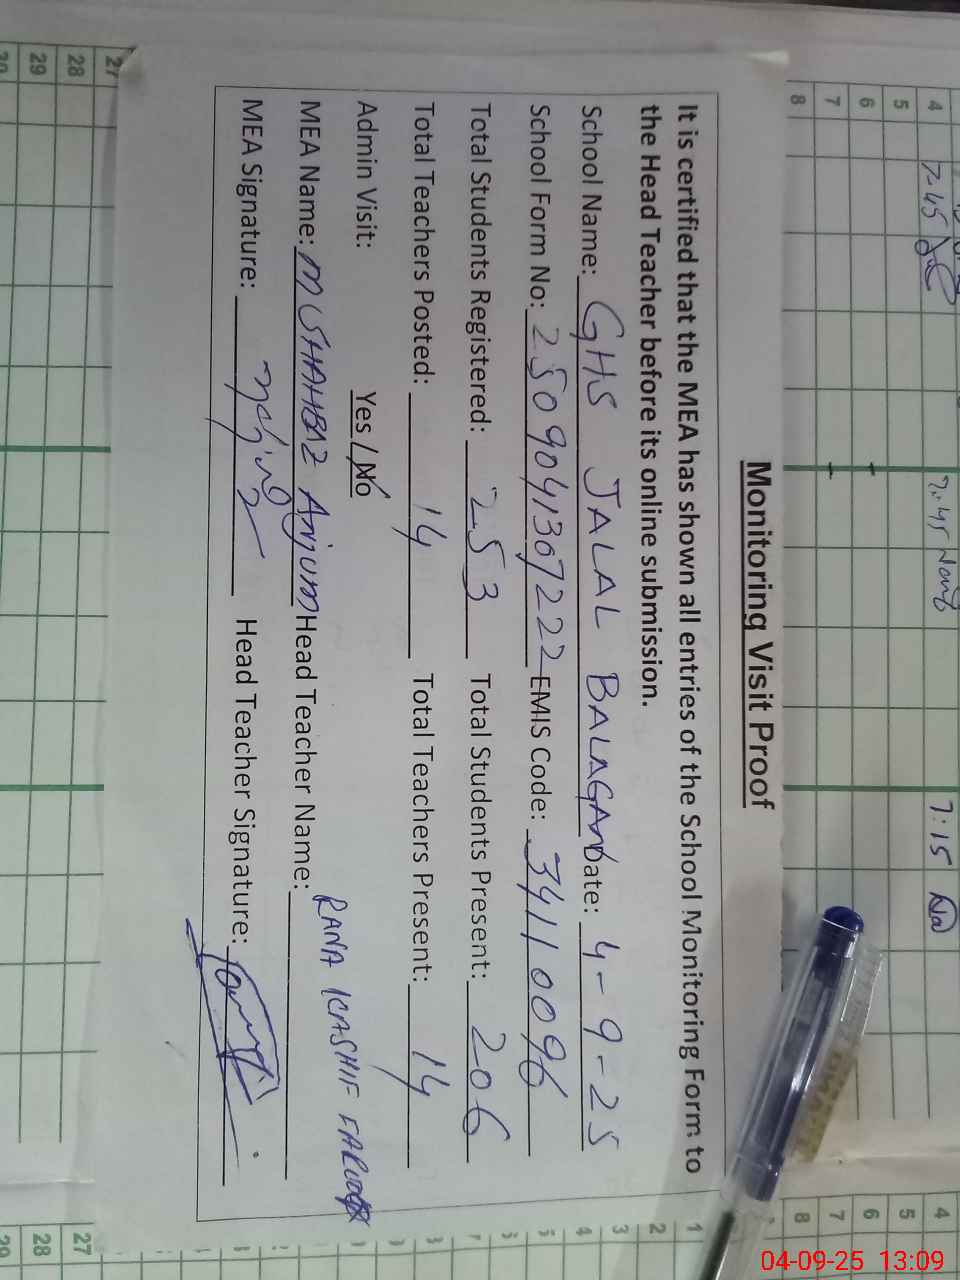 Monitoring Visit Proof
It is certified that the MEA has shown all entries of the School Monitoring Form to
the Head Teacher before its online submission.
School Name: GHS JALAL BALAGAN Date: 4-9-25
School Form No: 2509041307222 EMIS Code: 34110096
Total Students Registered: 253 Total Students Present: 206
Total Teachers Posted: 14 Total Teachers Present: 14
Admin Visit: Yes / No
MEA Name: M SHAHBAZ Anjum Head Teacher Name: RANA KASHIF FAROOQ
MEA Signature: Head Teacher Signature:
4 7:45 7:45 7:15
5
6
7
8
27
28
29
30
1
2
3
4
5
6
7
8
27
28
29
04-09-25 13:09